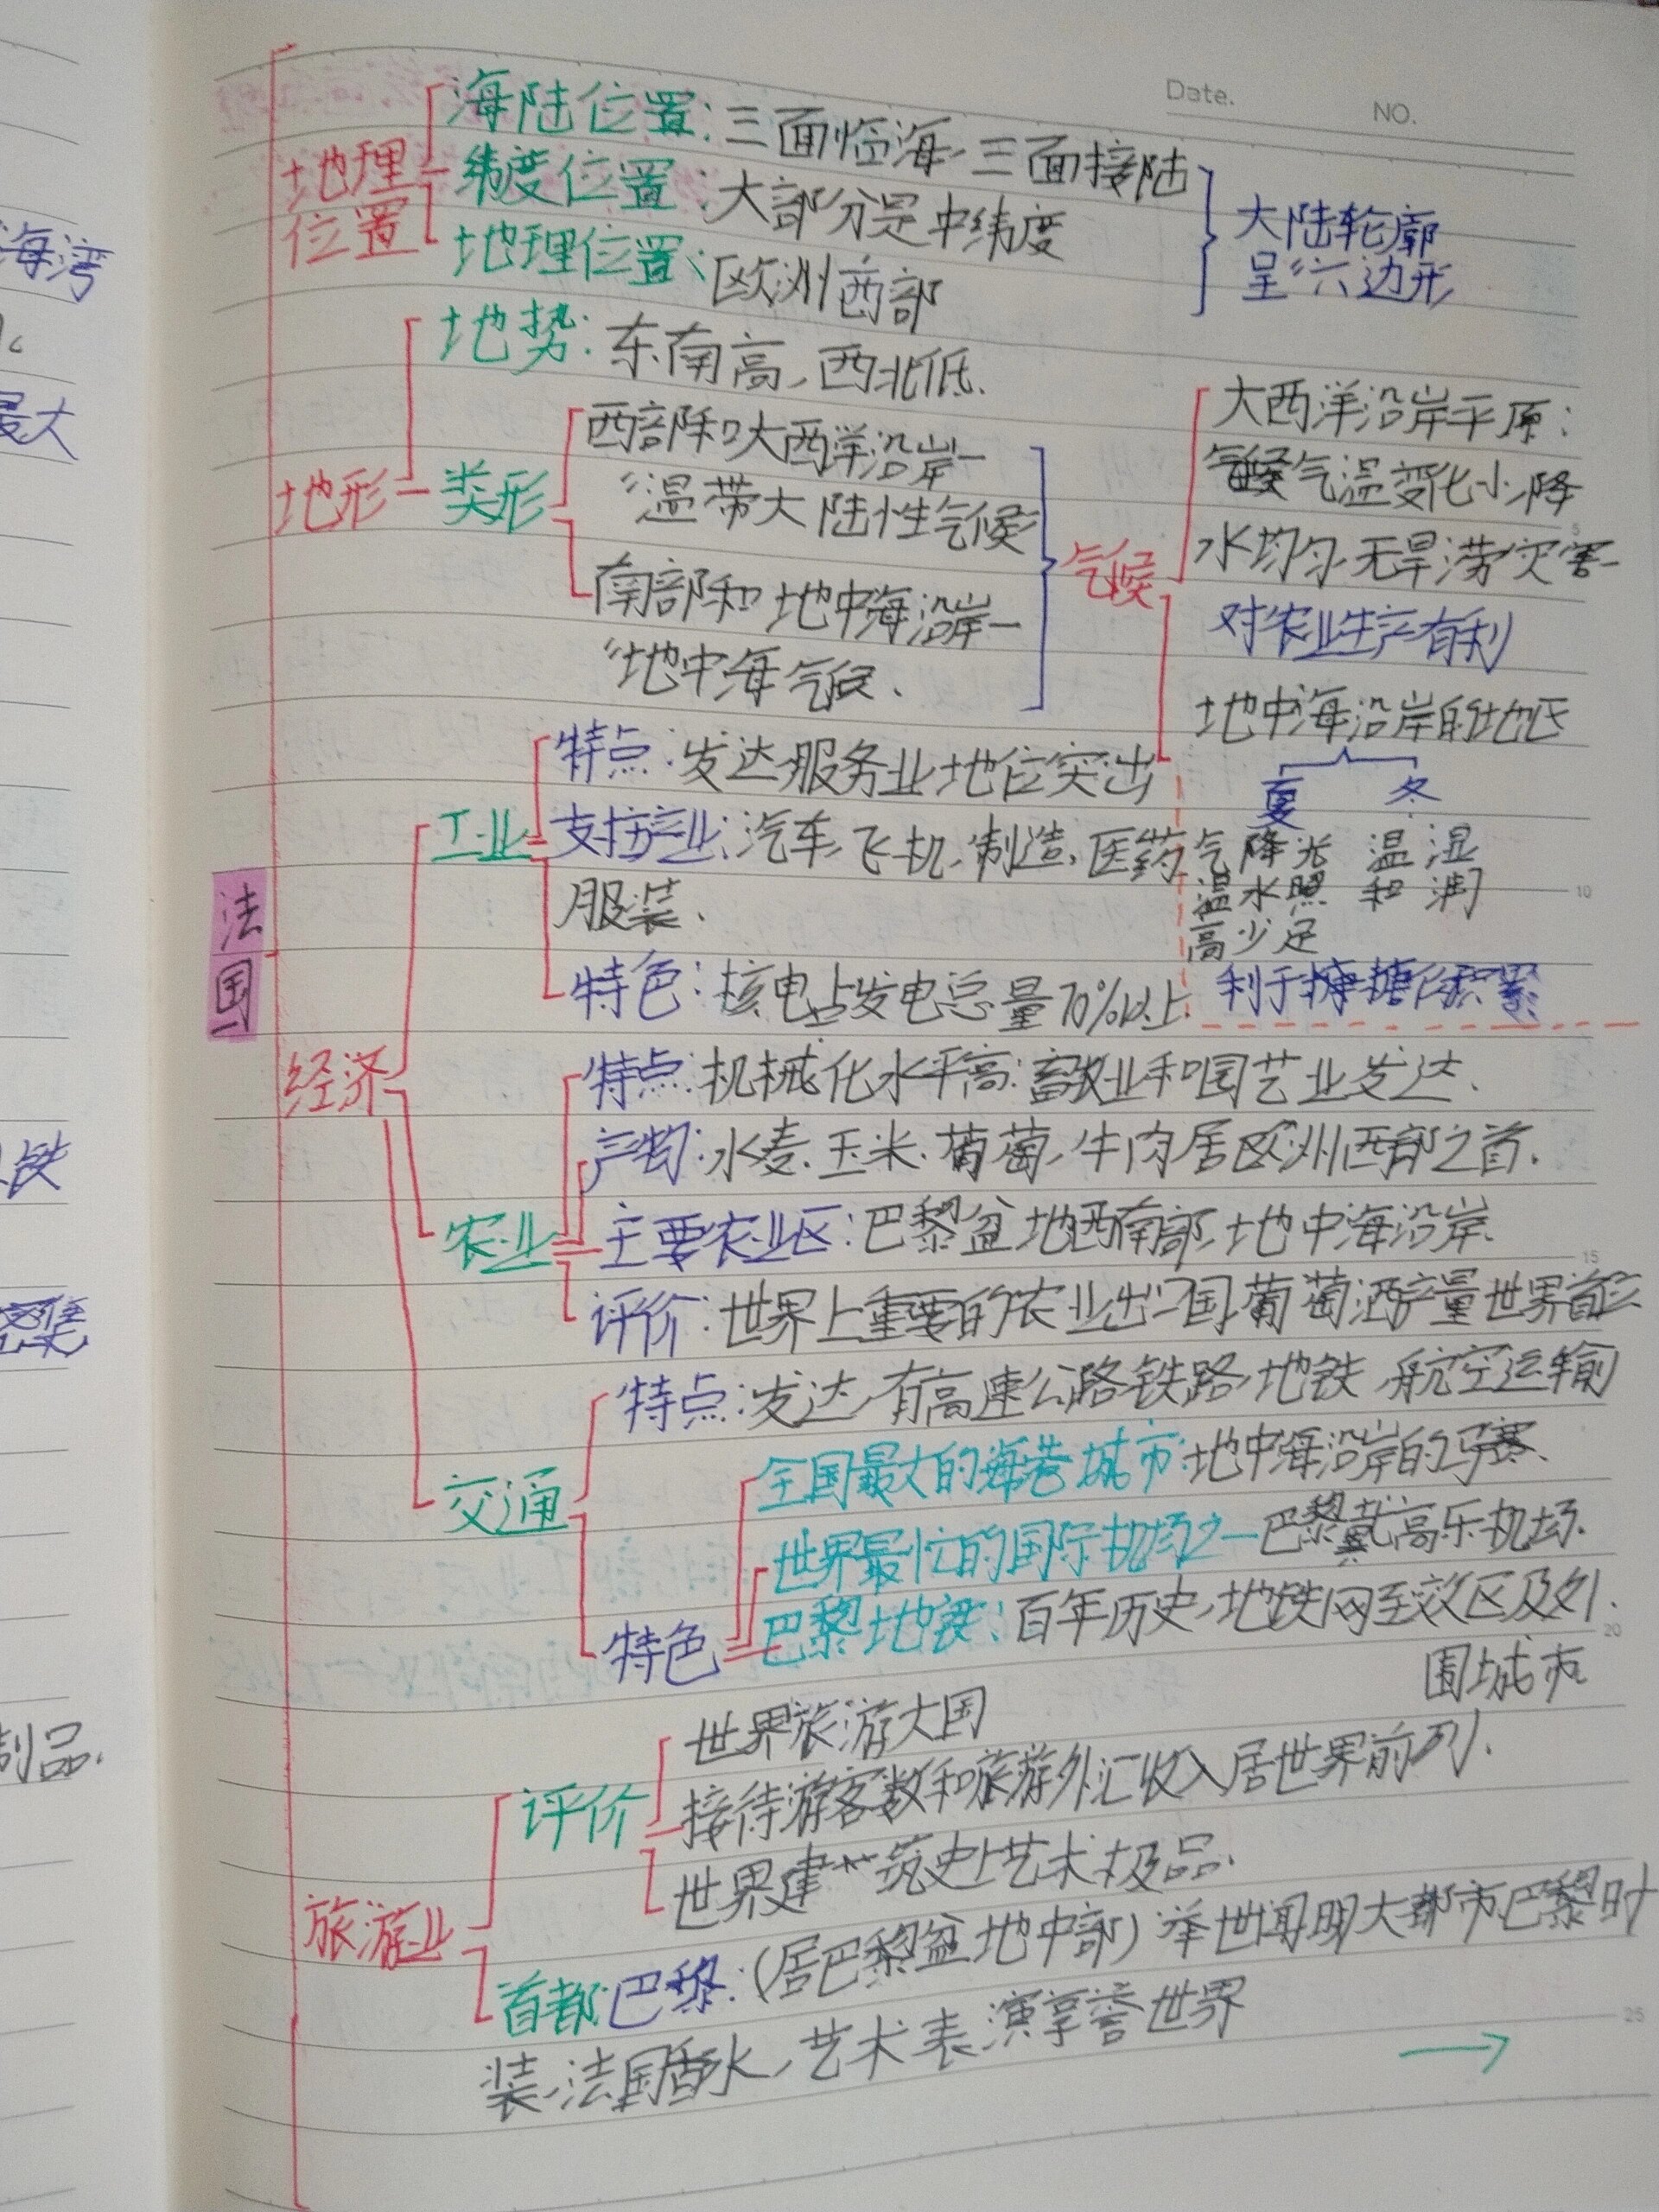 Date.
NO.
海湾
最大
铁
密集
制品.
法国
地理位置
海陆位置:三面临海,三面接陆
纬度位置:大部分是中纬度
地理位置:欧洲西部
大陆轮廓
呈“六边形
地形
地势:东南高,西北低.
类形
西部和大西洋沿岸—
“温带大陆性气候
南部和地中海沿岸—
“地中海气候.
气候
大西洋沿岸平原:
气温变化小,降
水均匀,无旱涝灾害—
对农业生产有利
地中海沿岸的地区
夏 冬
气温高 降水少 光照足 温和 湿润
利于糖份积累
经济
工业
特点:发达,服务业地位突出
支柱产业:汽车,飞机,制造,医药
服装.
特色:核电占发电总量70%以上.
农业
特点:机械化水平高:畜牧业和园艺业发达.
产物:水麦.玉米.葡萄,牛肉居欧洲西部之首.
主要农业区:巴黎盆地西南部,地中海沿岸.
评价:世界上重要的农业出口国,葡萄酒产量世界首位
交通
特点:发达,有高速公路铁路,地铁,航空运输
特色
全国最大的海港城市:地中海沿岸的马赛.
世界最忙的国际机场之一巴黎戴高乐机场.
巴黎地铁:百年历史,地铁网至效区及外.
围城市
旅游业
评价
世界旅游大国
接待游客数和旅游外汇收入居世界前列.
世界建筑史上艺术极品.
首都:巴黎:(居巴黎盆地中部)举世闻明大都市巴黎时
装,法国香水,艺术表演享誉世界
5
10
15
20
25